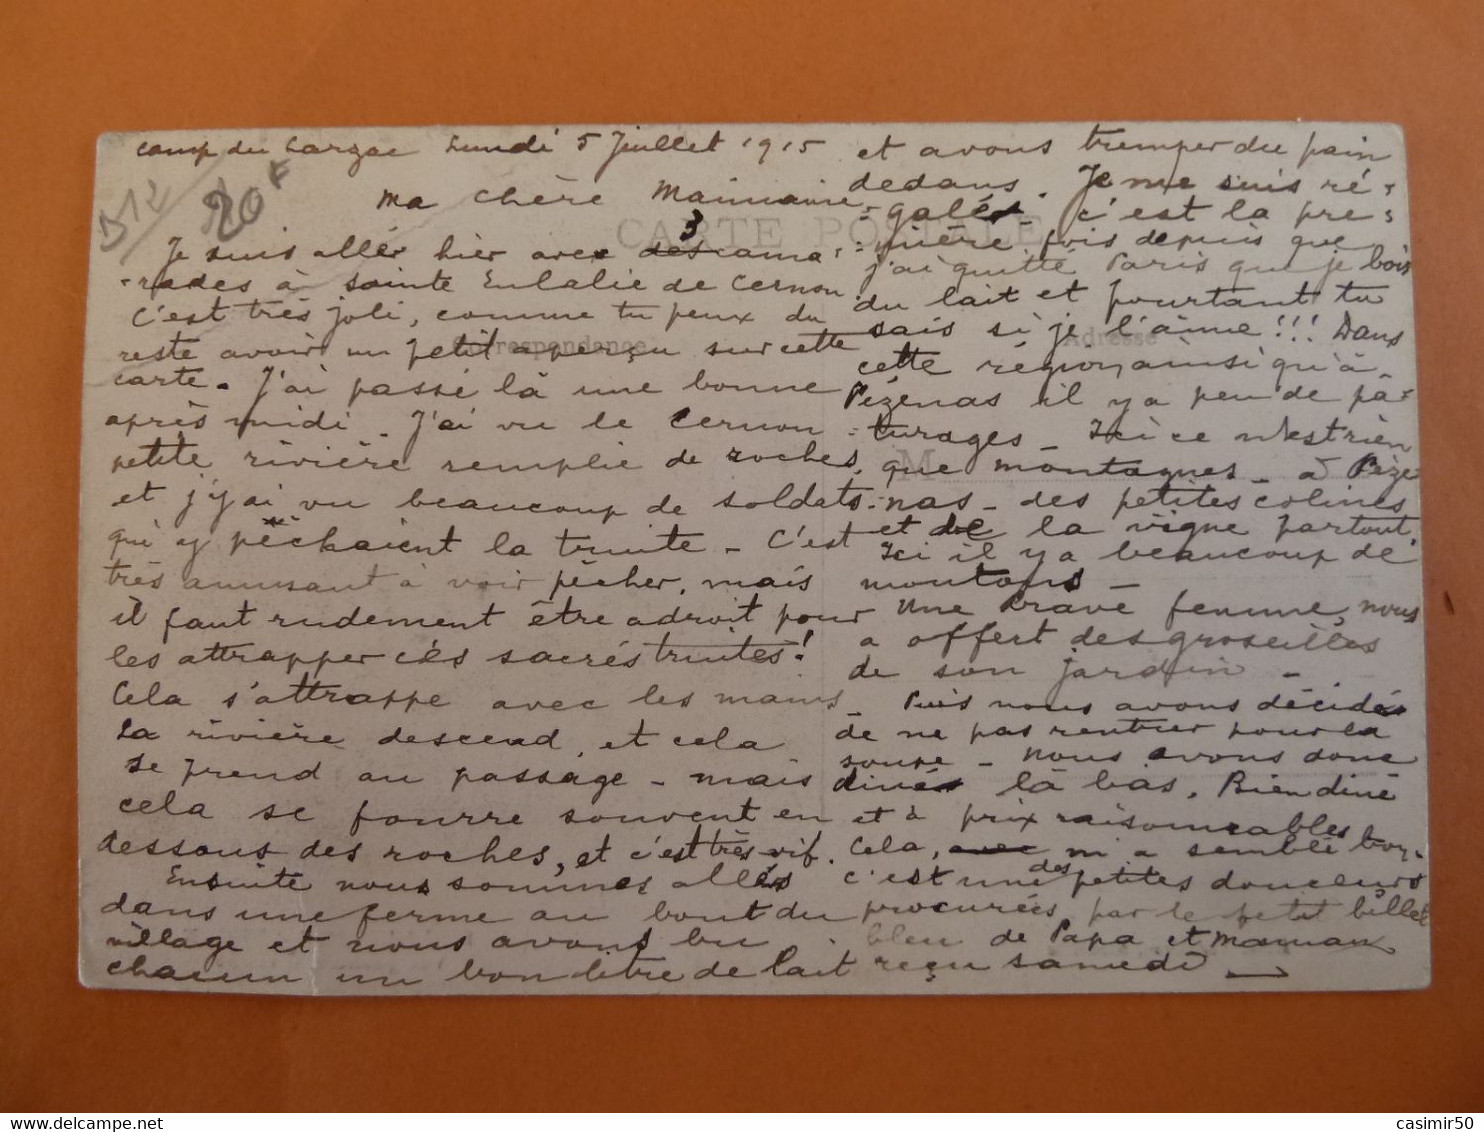 camp du Larzac Lundi 5 Juillet 1915
512
20F
Ma chère Mamaine
CARTE POSTALE
Correspondance
Adresse
M
Je suis allér hier avec des 3 cama-
-rades à sainte Eulalie de Cernon.
C'est très joli, comme tu peux du
reste avoir un petit aperçu sur cette
carte. J'ai passé là une bonne
après midi. J'ai vu le Cernon
petite rivière remplie de roches,
et j'y ai vu beaucoup de soldats
qui y pêchaient la truite - C'est
très amusant à voir pêcher, mais
il faut rudement être adroit pour
les attrapper ces sacrés truites!
Cela s'attrappe avec les mains
La rivière descend, et cela
se prend au passage - mais
cela se fourre souvent en
dessous des roches, et c'est très vif.
Ensuite nous sommes allés
dans une ferme au bout du
village et nous avons bu
chacun un bon litre de lait
et avons tremper du pain
dedans. Je me suis ré-
-galé - c'est la pre-
-mière fois depuis que
j'ai quitté Paris que je bois
du lait et pourtant tu
sais si je l'aime!!! Dans
cette région ainsi qu'à
Pézenas il y a peu de pâ-
-turages - Ici ce n'est rien
que montagnes - à Péze
-nas - des petites colines
et de la vigne partout.
Ici il y a beaucoup de
moutons -
Une brave femme, nous
a offert des groseilles
de son jardin -
- Puis nous avons décidé
de ne pas rentrer pour la
soupe - Nous avons donc
diné là bas. Bien diné
et à prix raisonneables
Cela, avec m'a semblé bon.
C'est une des petites douceurs
procurées par le petit billet
bleu de Papa et Maman
reçu samedi
casimir50
delcampe.net